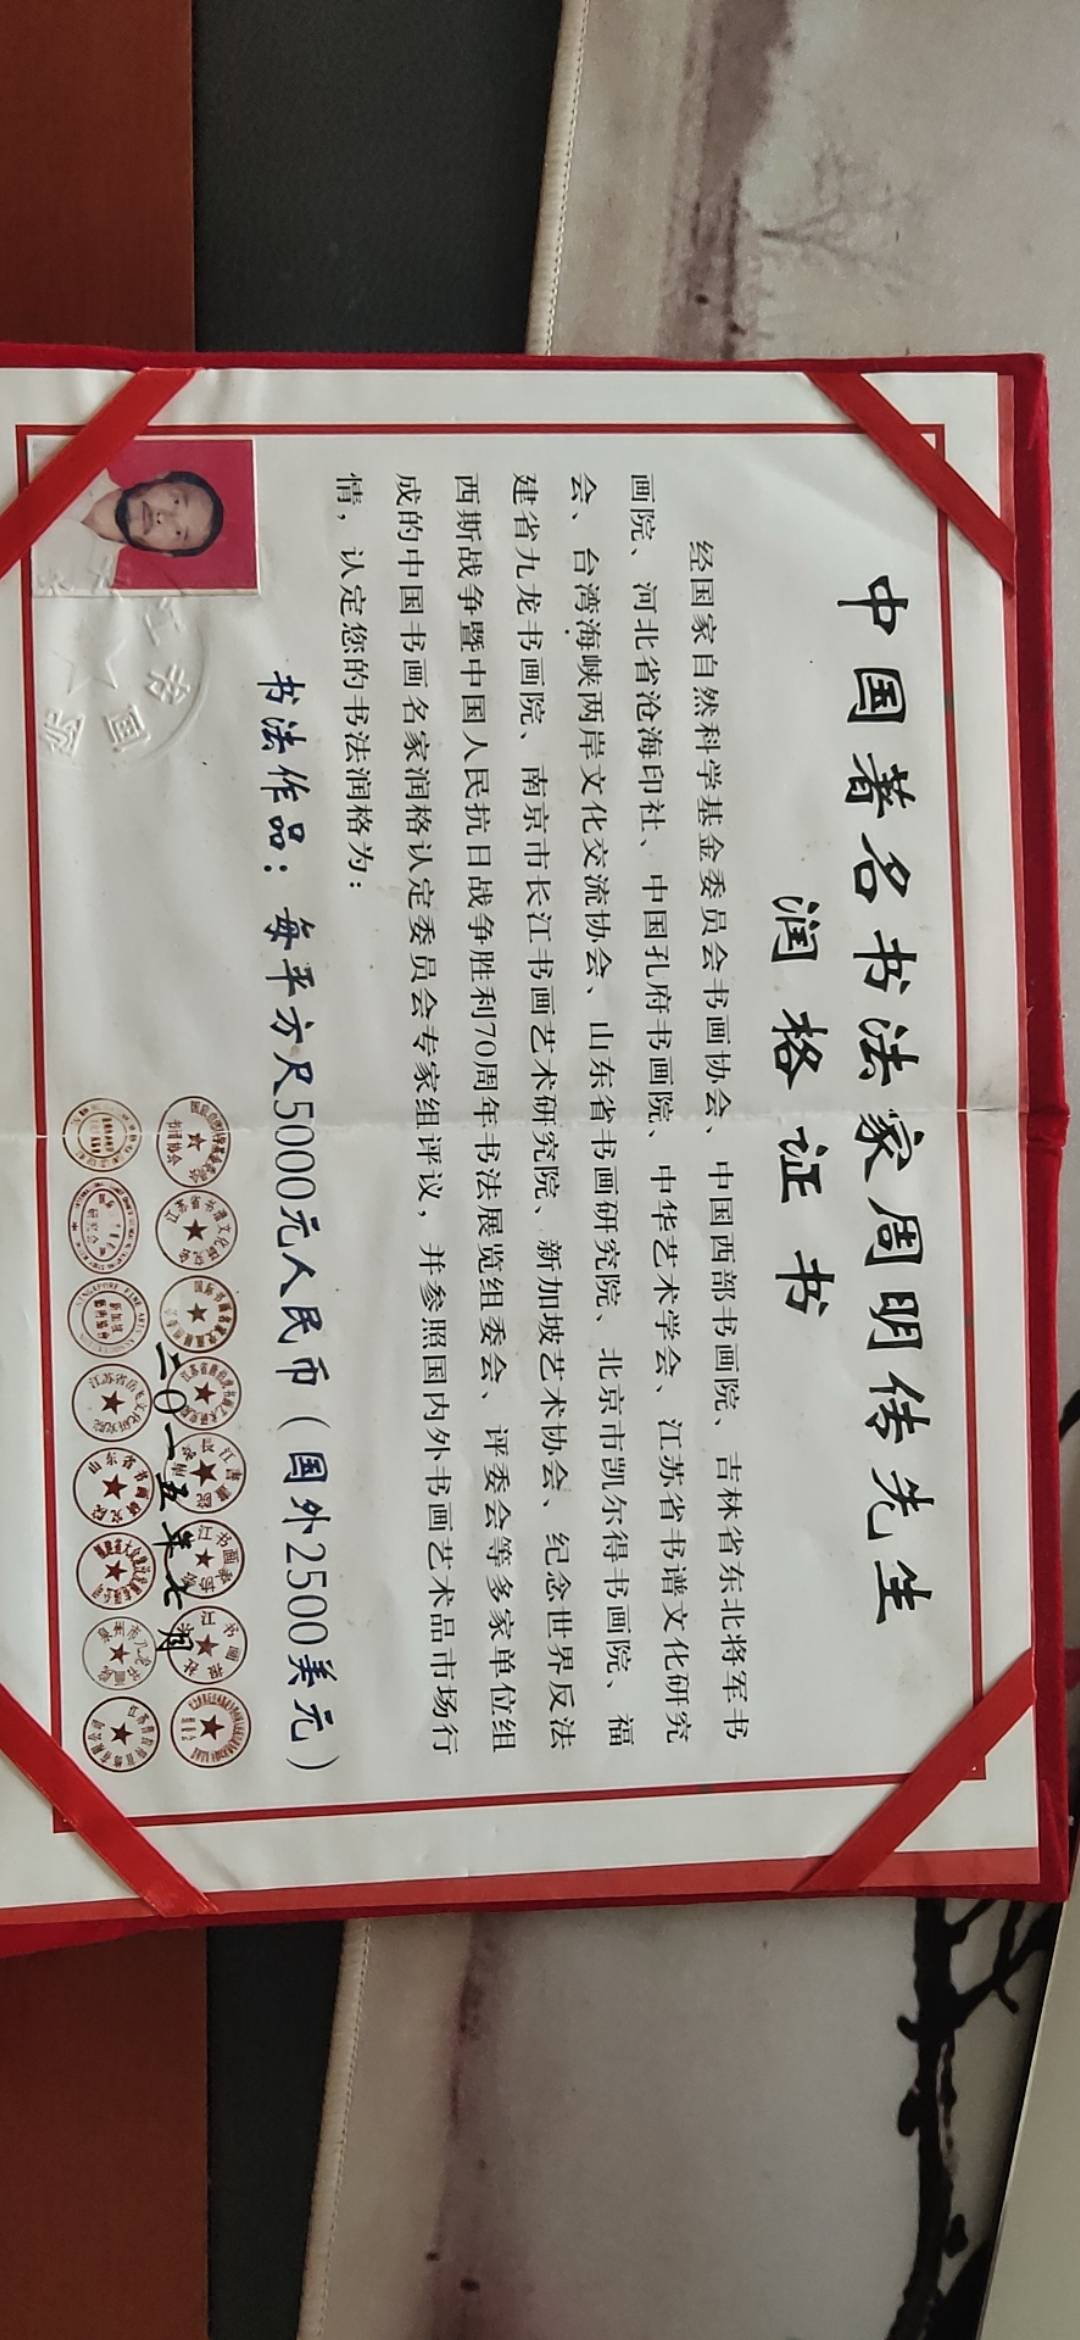 中国著名书法家周明传先生
润格证书
经国家自然科学基金委员会书画协会、中国西部书画院、吉林省东北将军书
画院、河北省沧海印社、中国孔府书画院、中华艺术学会、江苏省书谱文化研究
会、台湾海峡两岸文化交流协会、山东省书画研究院、北京市凯尔得书画院、福
建省九龙书画院、南京市长江书画艺术研究院、新加坡艺术协会、纪念世界反法
西斯战争暨中国人民抗日战争胜利70周年书法展览组委会、评委会等多家单位组
成的中国书画名家润格认定委员会专家组评议，并参照国内外书画艺术品市场行
情，认定您的书法润格为：
书法作品：每平方尺5000元人民币（国外2500美元）
二〇一五年七月